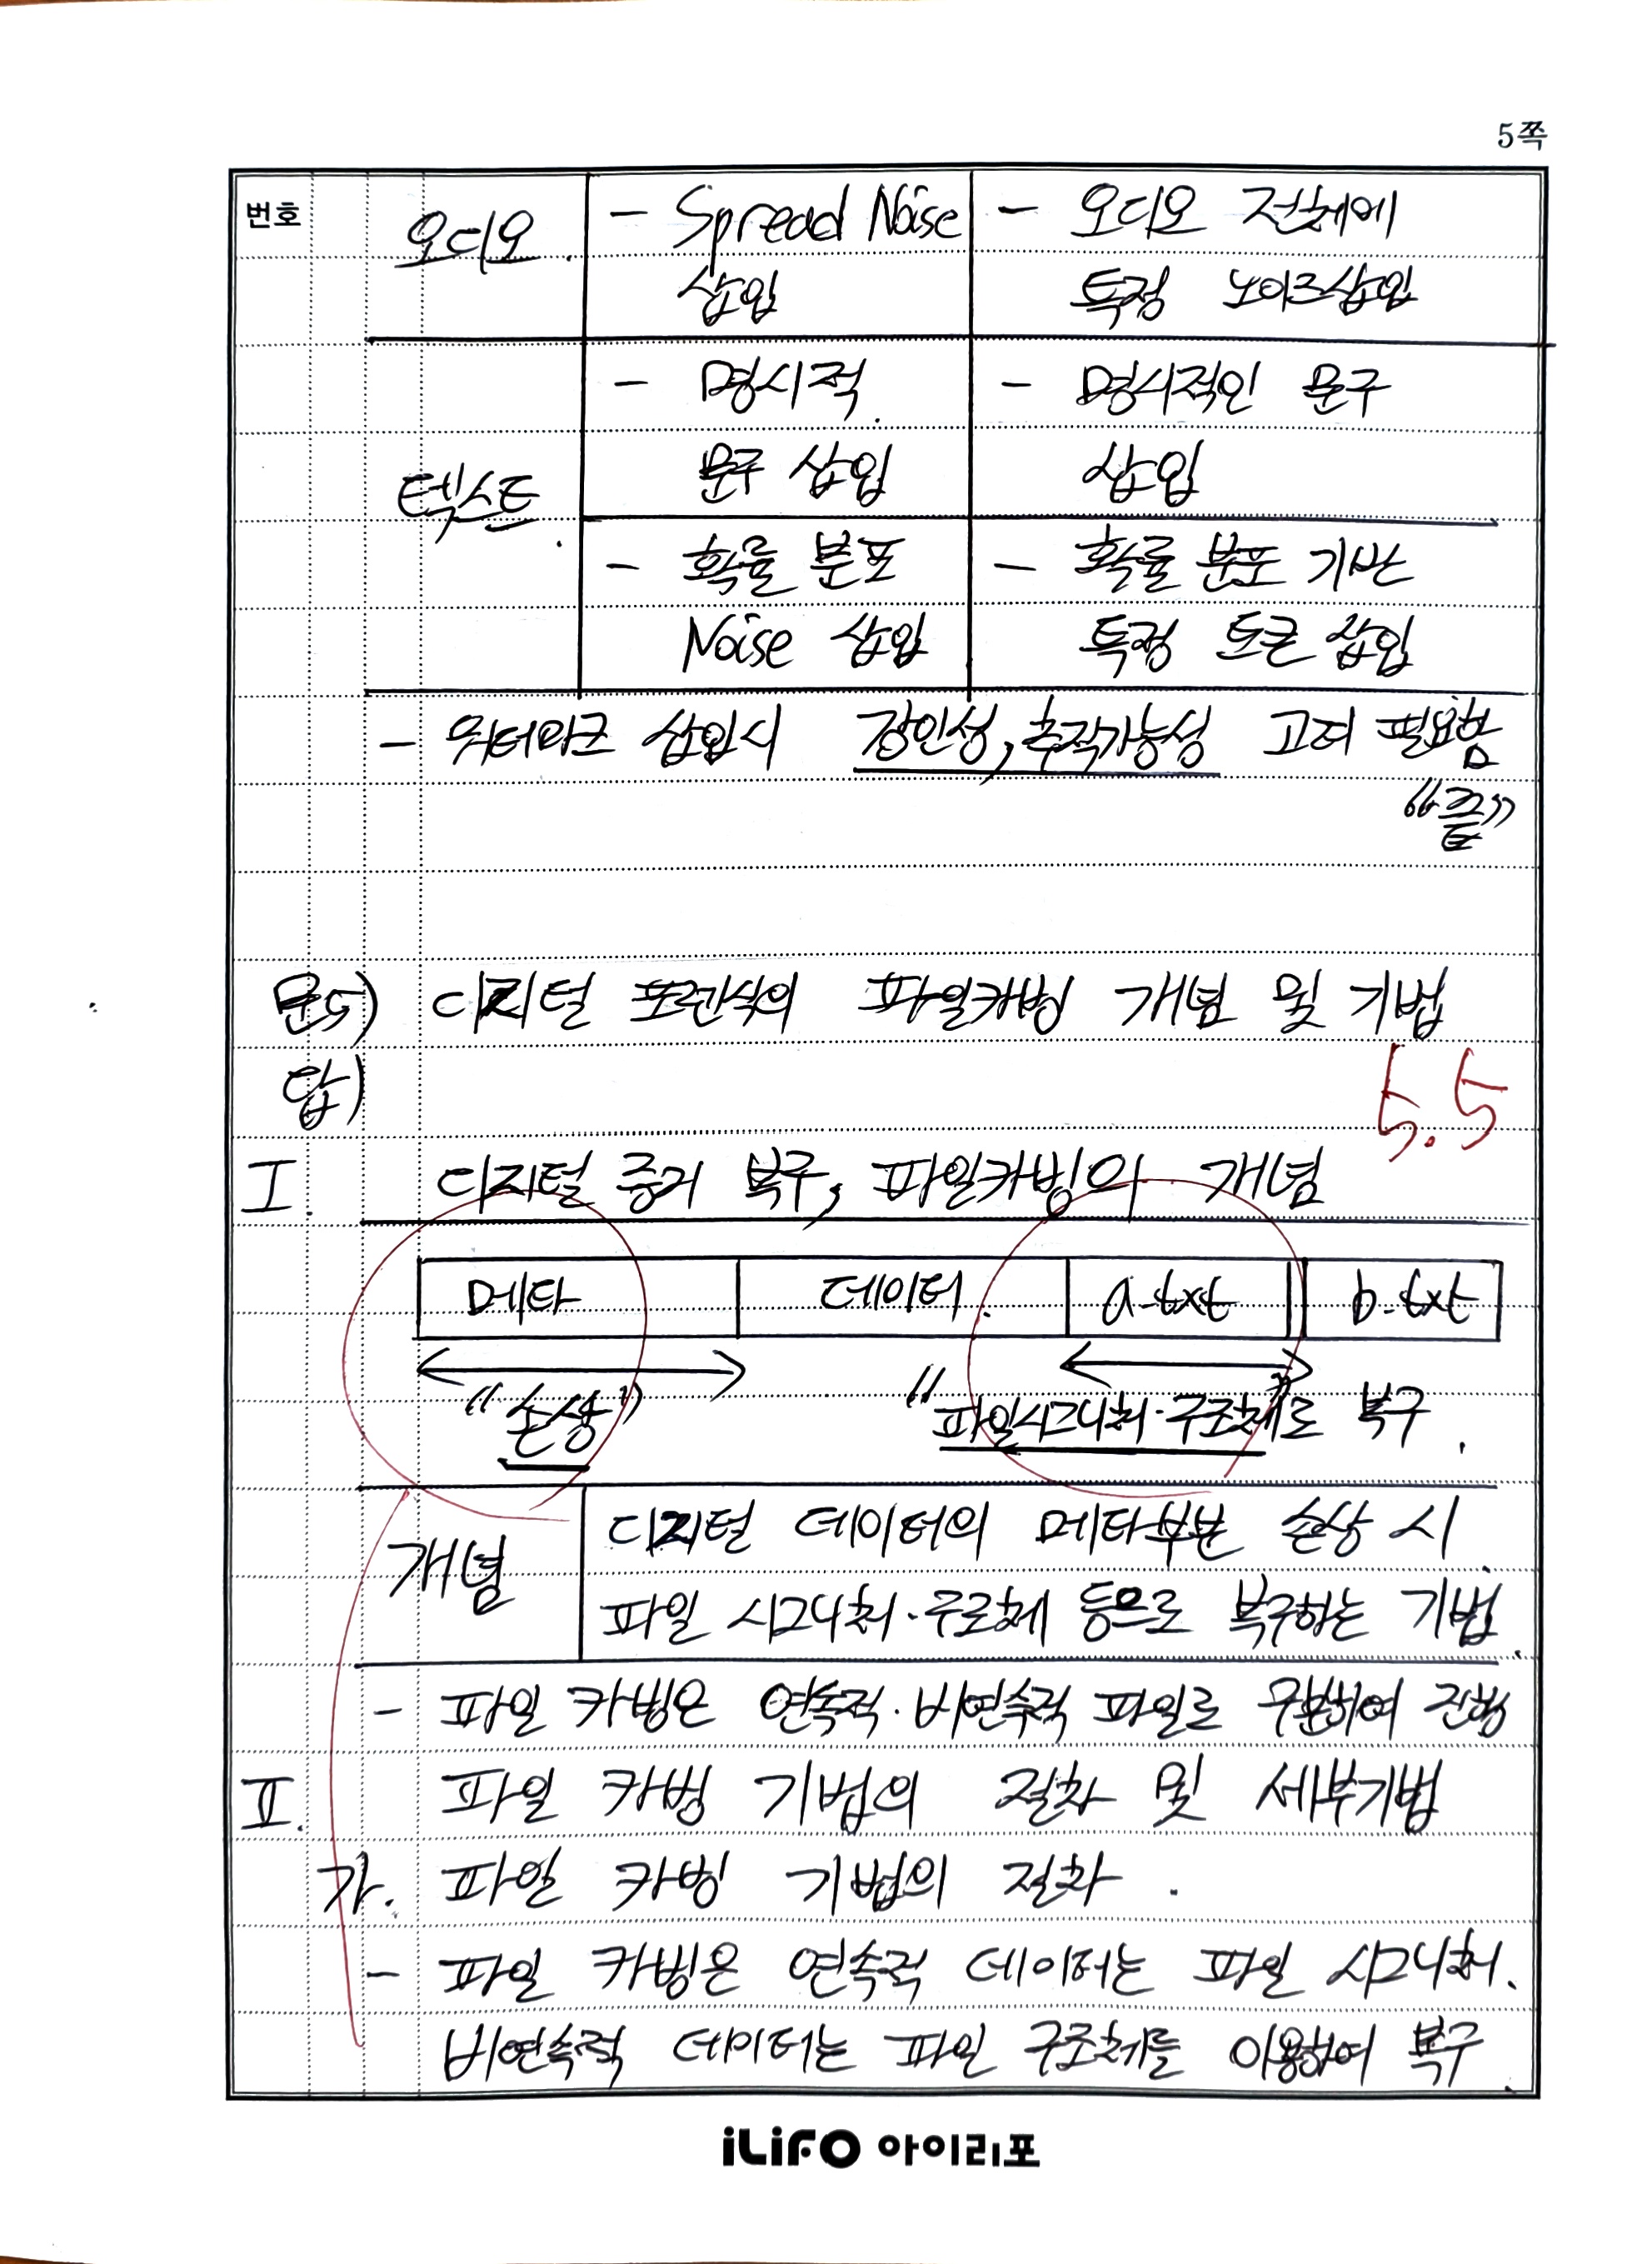 5쪽
번호
오디오. - Spread Noise - 오디오 전체에
삽입 특정 노이즈삽입
- 명시적 - 명시적인 문구
텍스트. 문구 삽입 삽입
- 확률 분포 - 확률 분포 기반
Noise 삽입 특정 토큰 삽입
- 워터마크 삽입시 강인성, 추적가능성 고려 필요함
"끝"
문5) 디지털 포렌식의 파일카빙 개념 및 기법
답)
5.5
I. 디지털 증거 복구, 파일카빙의 개념
메타 데이터. a.txt b.txt
"손상" "파일시그니처·구조체"로 복구.
개념 디지털 데이터의 메타부분 손상 시
파일 시그니처·구조체 등으로 복구하는 기법.
- 파일 카빙은 연속적·비연속적 파일로 구분하여 진행
II. 파일 카빙 기법의 절차 및 세부기법
가. 파일 카빙 기법의 절차.
- 파일 카빙은 연속적 데이터는 파일 시그니처.
비연속적 데이터는 파일 구조체를 이용하여 복구.
iLiFO 아이리포